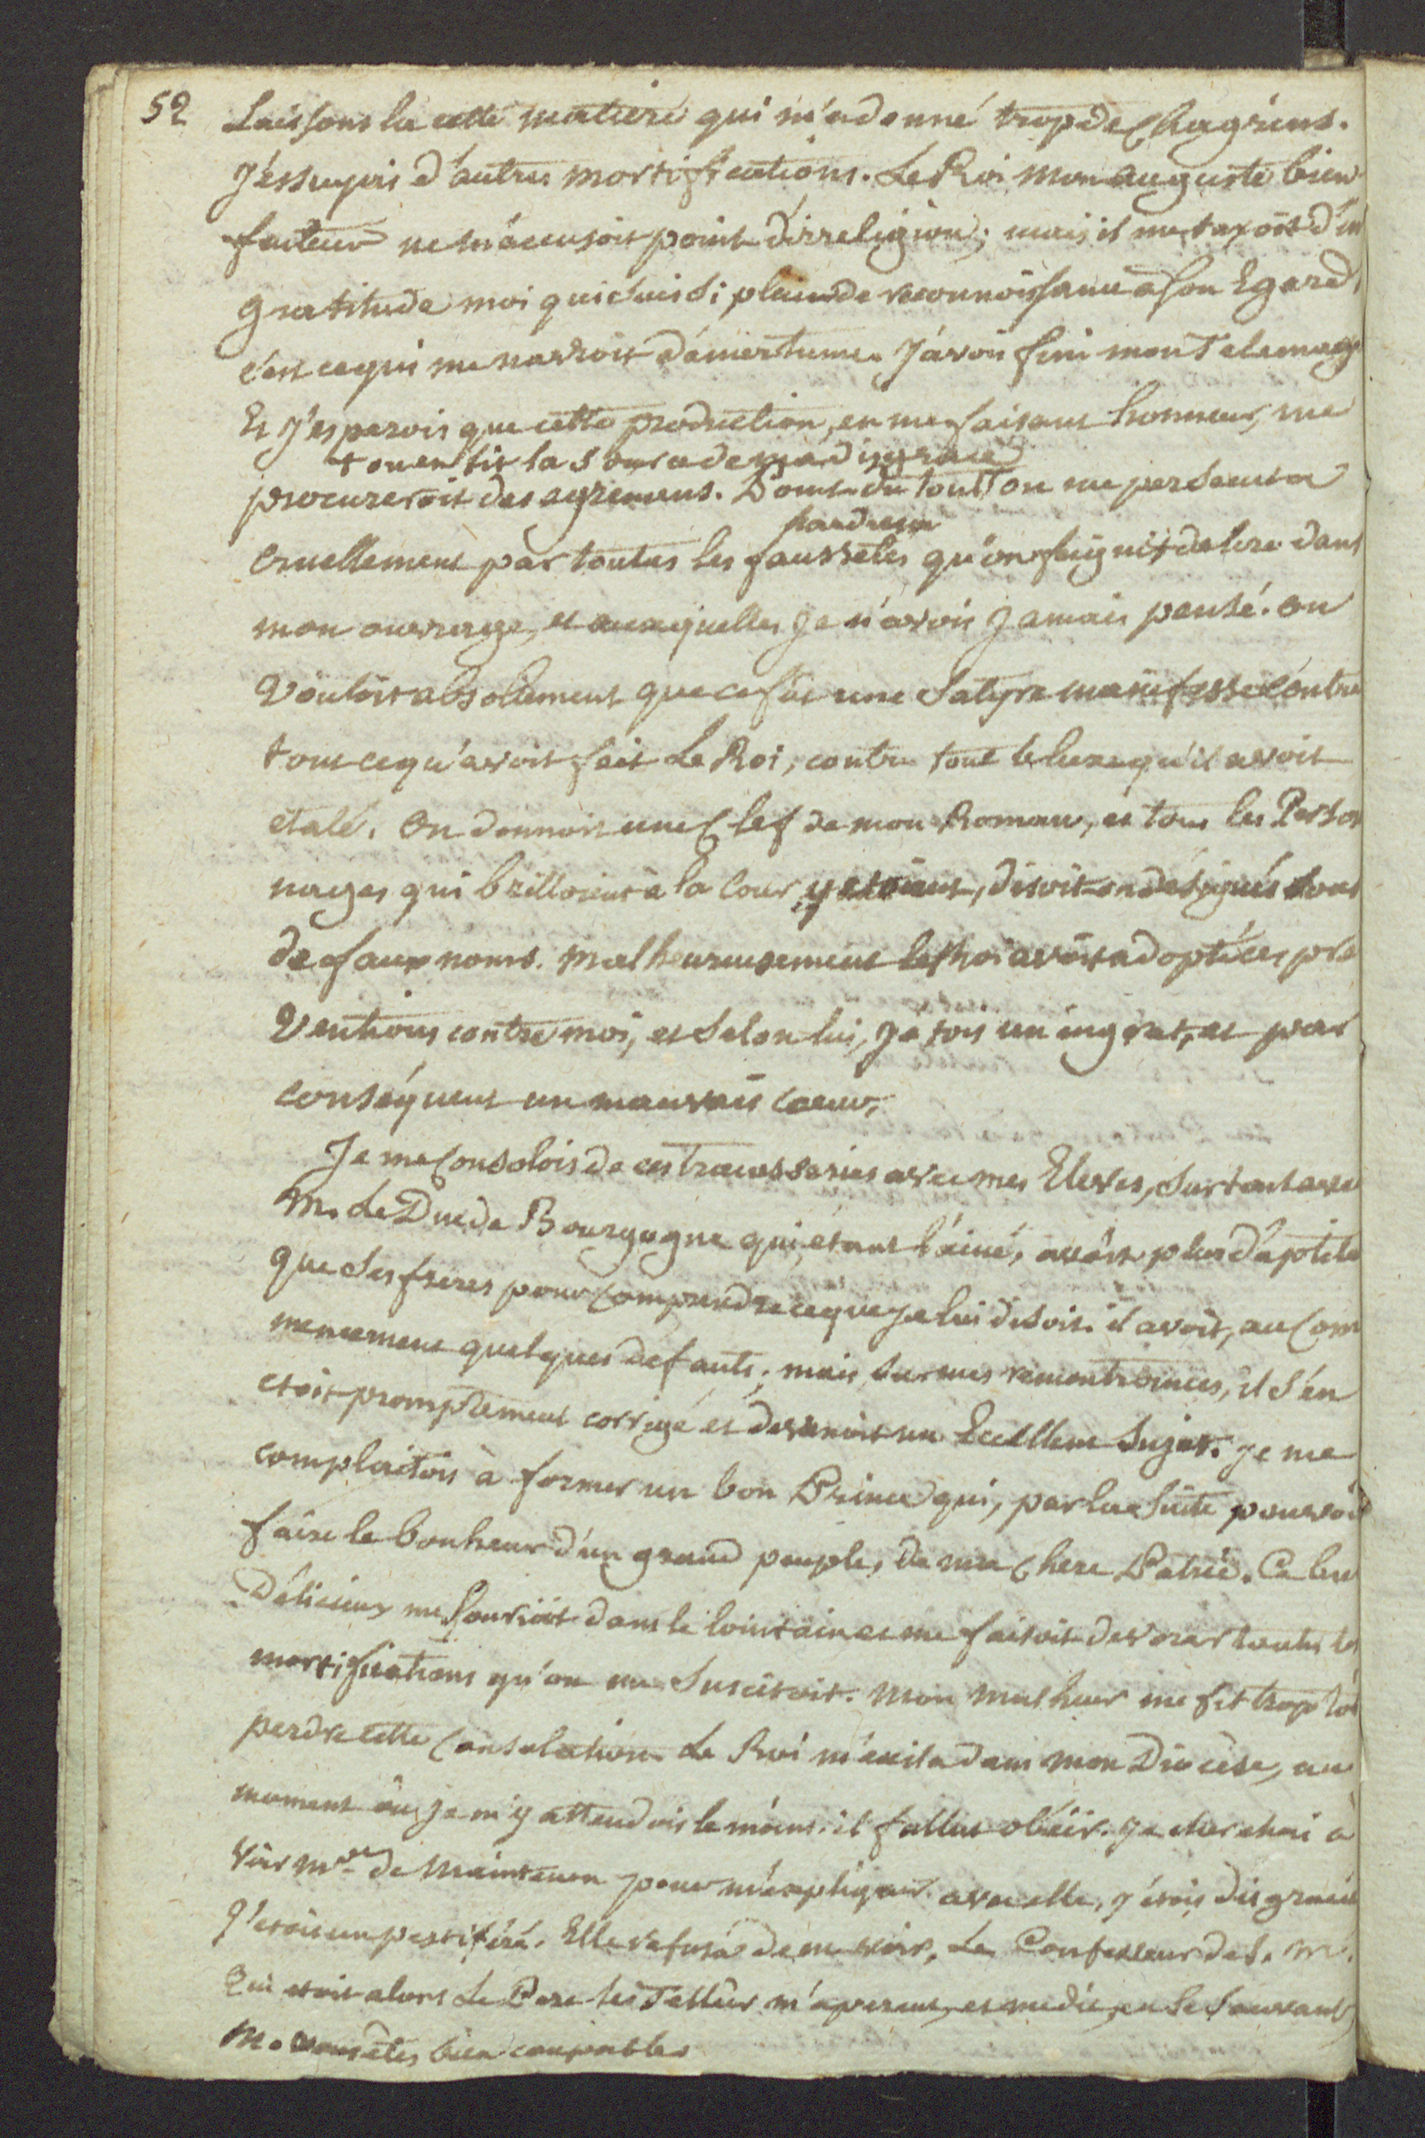 52 Laissons la cette matiere qui m'a donné trop de Chagrins.
J'éssuyois d'autres mortifications. Le Roi mon auguste bien
faiteur ne m'accusoit point d'irreligion; mais il me taxoit d'in
gratitude moi qui suis si plein de reconnoissance à son Egard,
c'est ce qui me navroit d'amertume. J'avois fini mon Telemaque
Et J'esperois que cette production, en me faisant honneur, me
+ on en fit la Source de ma disgrace
procureroit des agremens. Point du tout + on me persecuta
hardiesse
Cruellement par toutes les faussetes qu'on feignit de lire dans
mon ouvrage, et auxquelles Je n'avois Jamais pensé. on
Vouloit absolument que ce fût une Satyre manifeste contre
tout ce qu'avoit fait Le Roi, contre tout le luxe qu'il avoit
etalé. On donnoit une Clef de mon Roman, et tous les Person
nages qui brilloient à la Cour y etoient, disoit-on désignés sous
de faux noms. Malheureusement le Roi avoit adopté ces pre
Ventions contre moi, et selon lui, J'étois un ingrat, et par
Conséquent un mauvais coeur.
Je me Consolois de ces tracasseries avec mes Eleves, surtout avec
M. Le Duc de Bourgogne qui, étant l'ainé, avoit plus d'aptitu
que ses freres pour Comprendre ce que Je lui disois. il avoit, au Com
mencement quelques defauts; mais sur mes remontrances, il s'en
etoit promptement corrigé et devenoit un Excellent Sujet. Je me
complaitois à former un bon Prince qui, par la Suite pouvoit
faire le bonheur d'un grand peuple, de ma Chere Patrie. Ce but
Délicieux me Sourioit dans le lointain et me faisoit devorer toutes les
mortifications qu'on me Suscitoit. Mon malheur me fit trop tôt
perdre cette Consolation. Le Roi m'exila dans mon Diocèse, au
moment où Je m'y attendois le moins. il fallut obéir. Je cherchai à
Voir Mde de Maintenon pour m'expliquer avec elle, J'étois disgracié
J'etois un pestiféré. Elle refusa de me voir. Le Confesseur de S. M.
Qui etoit alors Le Pere le Tellier m'aperçut, et me dit, en se sauvant,
M. vous êtes bien coupable.